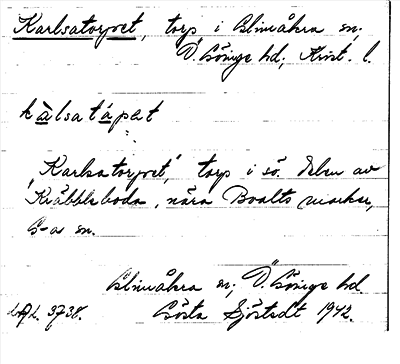 Karlsatorpet, torp i Glimåkra sn;
Ö. Göinge hd; Krist. l.
kàlsatápet
'Karlsatorpet', torp i sö. delen av
Kräbbleboda, nära Boalts marker,
G-a sn.
Glimåkra sn; Ö. Göinge hd
LAL. 3738. Gösta Sjöstedt 1942.